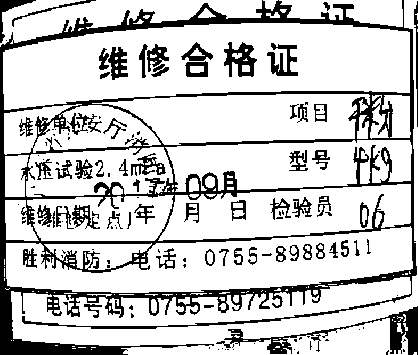 维修合格证
维修合格证
维修单位 项目 干粉
水质试验2.4mpa 型号 4KG
维修日期 20 年 09月 日 检验员 06
胜利消防: 电话: 0755-89884511
电话号码: 0755-89725119